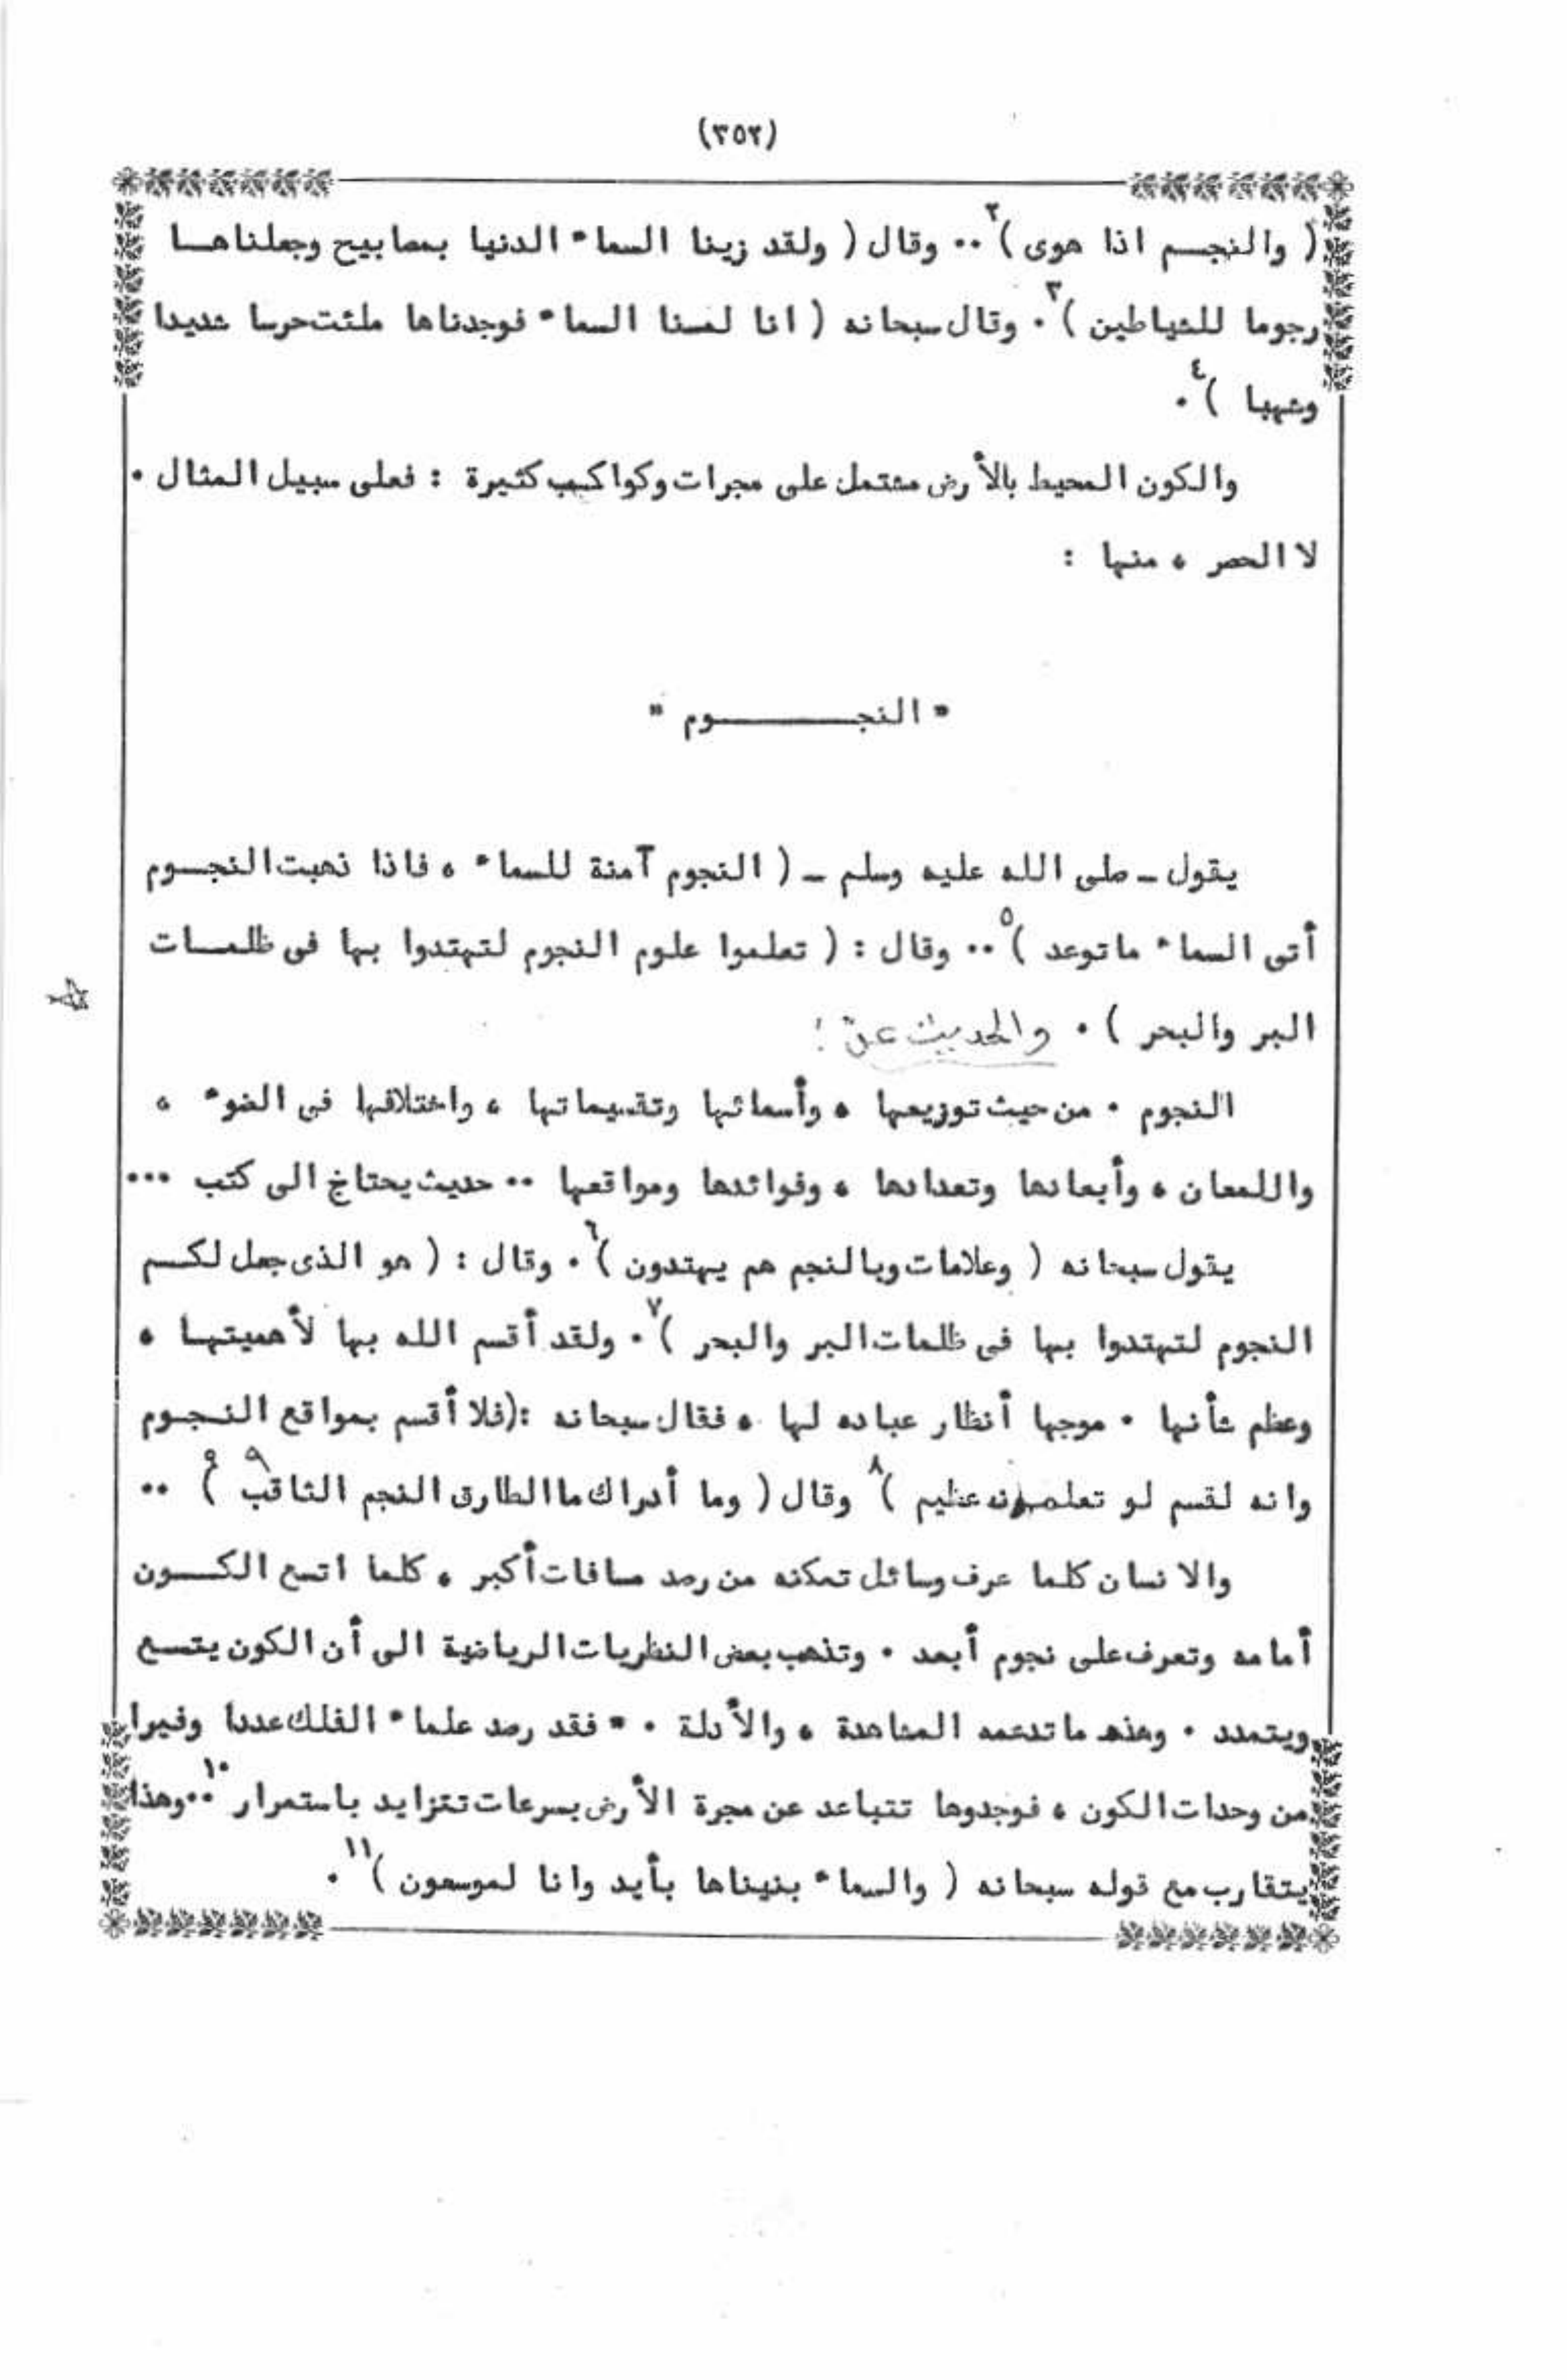 (٣٥٢)
( والنجـــم اذا هوى )٢ ٠٠ وقال ( ولقد زينا السماء الدنيا بمصابيح وجعلناهــا
رجوما للشياطين )٣ ٠ وقال سبحانه ( انا لمسنا السماء فوجدناها ملئت حرسا شديدا
وشهبا )٤ ٠
والكون المحيط بالأرض مشتمل على مجرات وكواكب كثيرة : فعلى سبيل المثال ٠
لا الحصر ، منها :
" النجــــــــوم "
يقول ـ صلى الله عليه وسلم ـ ( النجوم آمنة للسماء ، فاذا ذهبت النجــوم
أتى السماء ماتوعد )٥ ٠٠ وقال : ( تعلموا علوم النجوم لتهتدوا بها فى ظلمــات
البر والبحر ) ٠ والحديث عن :
النجوم ٠ من حيث توزيعها ، وأسمائها وتقسيماتها ، واختلافها فى الضوء ،
واللمعان ، وأبعادها وتعدادها ، وفوائدها ومواقعها ٠٠ حديث يحتاج الى كتب ٠٠٠
يقول سبحانه ( وعلامات وبالنجم هم يهتدون )٦ ٠ وقال : ( هو الذى جعل لكــم
النجوم لتهتدوا بها فى ظلمات البر والبحر )٧ ٠ ولقد أقسم الله بها لأهميتهــا ،
وعظم شأنها ٠ موجها أنظار عباده لها ، فقال سبحانه :(فلا أقسم بمواقع النجـوم
وانه لقسم لو تعلمون عظيم )٨ وقال ( وما أدراك ما الطارق النجم الثاقب )٩ ٠٠
والانسان كلما عرف وسائل تمكنه من رصد مسافات أكبر ، كلما اتسع الكــون
أمامه وتعرف على نجوم أبعد ٠ وتذهب بعض النظريات الرياضية الى أن الكون يتسـع
ويتمدد ٠ وهذه ماتدعمه المشاهدة ، والأدلة ٠ " فقد رصد علماء الفلك عددا وفيرا
من وحدات الكون ، فوجدوها تتباعد عن مجرة الأرض بسرعات تتزايد باستمرار ١٠ ٠٠وهذا
يتقارب مع قوله سبحانه ( والسماء بنيناها بأيد وانا لموسعون )١١ ٠